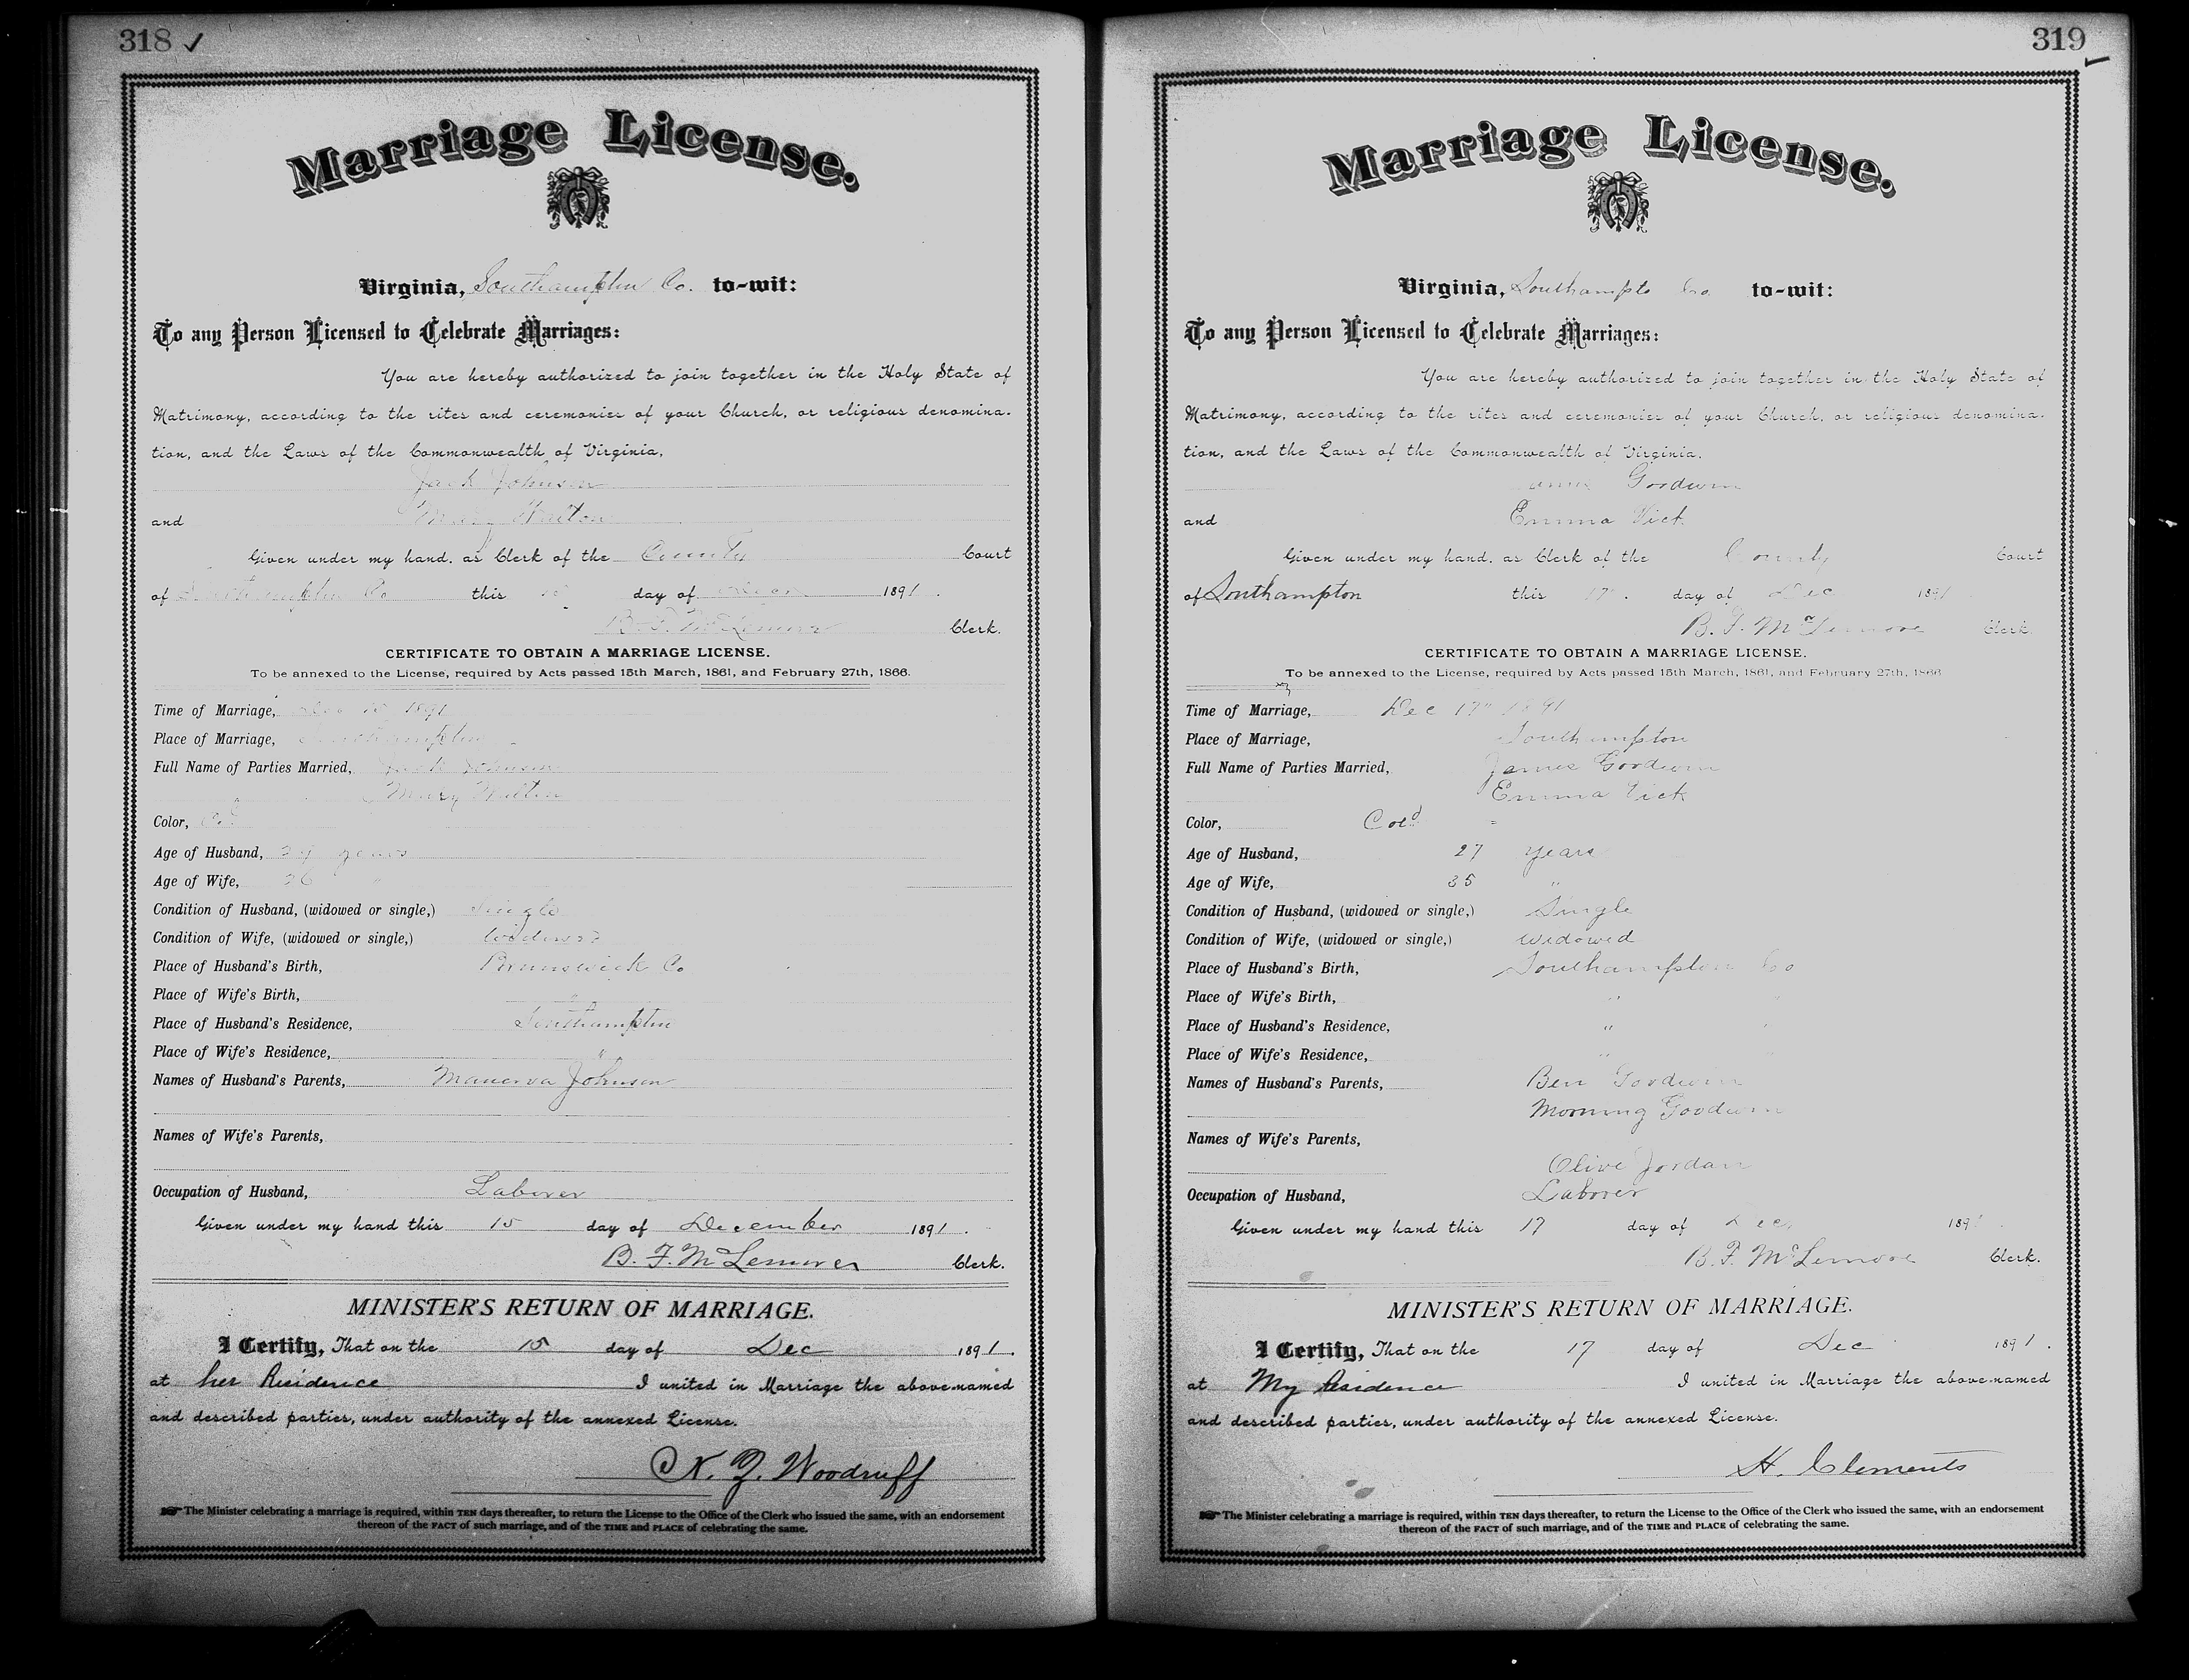 318 ✓
Marriage License.
Virginia, Southampton Co. to-wit:
To any Person Licensed to Celebrate Marriages:
You are hereby authorized to join together in the Holy State of
Matrimony, according to the rites and ceremonies of your Church, or religious denomina-
tion, and the Laws of the Commonwealth of Virginia,
Jack Johnson
and Mary
Given under my hand, as Clerk of the County Court
of Southampton Co this day of 1891.
B. F. McLemore Clerk.
CERTIFICATE TO OBTAIN A MARRIAGE LICENSE.
To be annexed to the License, required by Acts passed 15th March, 1861, and February 27th, 1866.
Time of Marriage, Dec 15 1891
Place of Marriage, Southampton
Full Name of Parties Married, Jack Johnson
Mary
Color, Cold
Age of Husband, years
Age of Wife, "
Condition of Husband, (widowed or single,) Single
Condition of Wife, (widowed or single,) Widowed
Place of Husband's Birth, Brunswick Co
Place of Wife's Birth, "
Place of Husband's Residence, Southampton
Place of Wife's Residence, "
Names of Husband's Parents, Manerva Johnson
Names of Wife's Parents,
Occupation of Husband, Laborer
Given under my hand this 15 day of December 1891.
B. F. McLemore Clerk.
MINISTER'S RETURN OF MARRIAGE.
I Certify, That on the 15 day of Dec 1891.
at her Residence I united in Marriage the above-named
and described parties, under authority of the annexed License.
Woodruff
The Minister celebrating a marriage is required, within TEN days thereafter, to return the License to the Office of the Clerk who issued the same, with an endorsement
thereon of the FACT of such marriage, and of the TIME and PLACE of celebrating the same.
319
Marriage License.
Virginia, Southampto Co. to-wit:
To any Person Licensed to Celebrate Marriages:
You are hereby authorized to join together in the Holy State of
Matrimony, according to the rites and ceremonies of your Church, or religious denomina-
tion, and the Laws of the Commonwealth of Virginia,
James Goodwin
and Emma Vick
Given under my hand, as Clerk of the County Court
of Southampton this 17". day of Dec 1891
B. F. McLemore Clerk.
CERTIFICATE TO OBTAIN A MARRIAGE LICENSE.
To be annexed to the License, required by Acts passed 15th March, 1861, and February 27th, 1866
Time of Marriage, Dec 17" 1891
Place of Marriage, Southampton
Full Name of Parties Married, James Goodwin
Emma Vick
Color, Cold
Age of Husband, 27 years
Age of Wife, 35 "
Condition of Husband, (widowed or single,) Single
Condition of Wife, (widowed or single,) Widowed
Place of Husband's Birth, Southampton Co
Place of Wife's Birth, " "
Place of Husband's Residence, " "
Place of Wife's Residence, " "
Names of Husband's Parents, Ben Goodwin
Morning Goodwin
Names of Wife's Parents,
Olive Jordan
Occupation of Husband, Laborer
Given under my hand this 17 day of Dec, 1891.
B. F. McLemore Clerk.
MINISTER'S RETURN OF MARRIAGE.
I Certify, That on the 17 day of Dec 1891.
at My Residence I united in Marriage the above-named
and described parties, under authority of the annexed License.
H. Clements
The Minister celebrating a marriage is required, within TEN days thereafter, to return the License to the Office of the Clerk who issued the same, with an endorsement
thereon of the FACT of such marriage, and of the TIME and PLACE of celebrating the same.